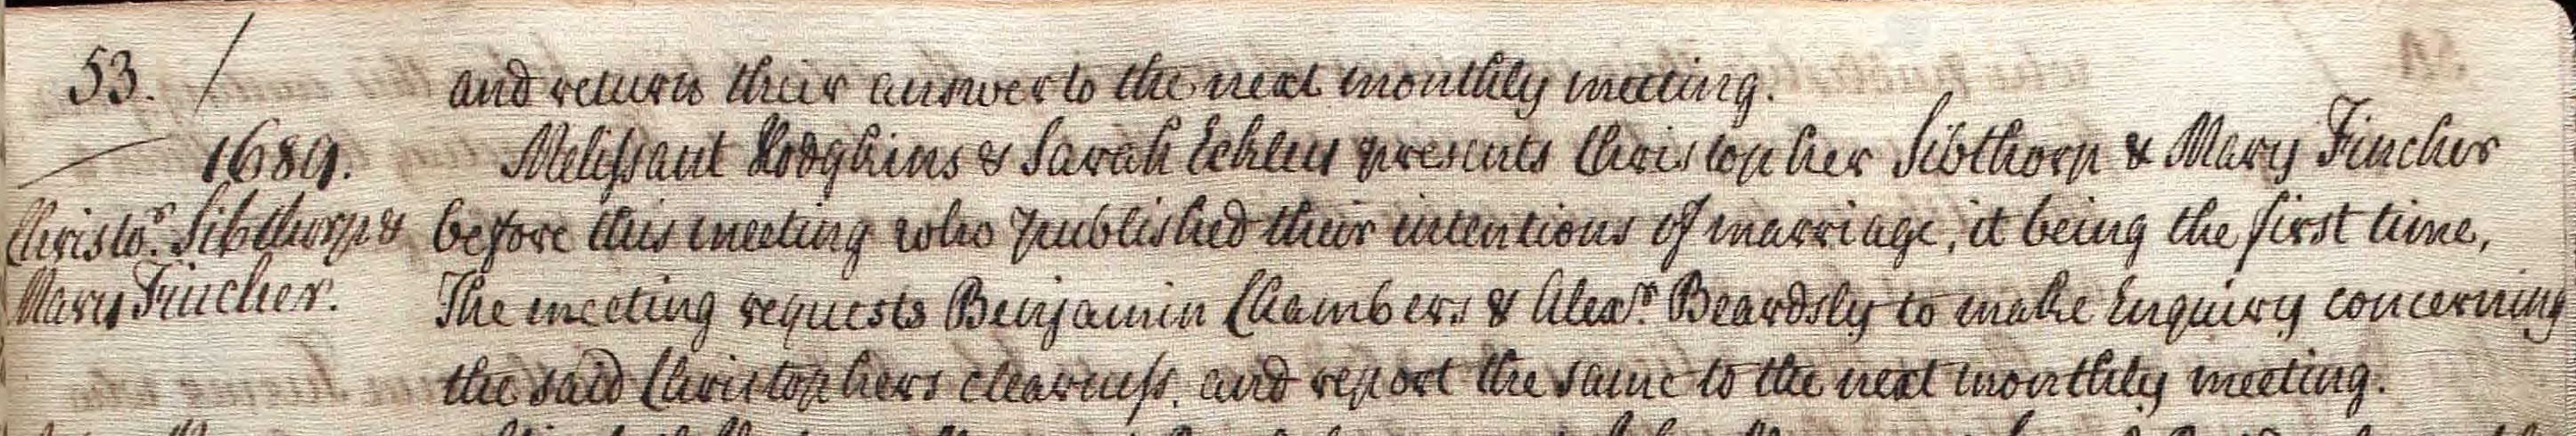 53. /
and return their answer to the next monthly meeting.
1689.
Melissant Hodgkins & Sarah Eckley presents Christopher Sibthorp & Mary Fincher
Christor. Sibthorp & before this meeting who published their intentions of marriage, it being the first time,
Mary Fincher. The meeting requests Benjamin Chambers & Alexr. Beardsly to make Enquiry concerning
the said Christophers clearness, and report the same to the next monthly meeting.